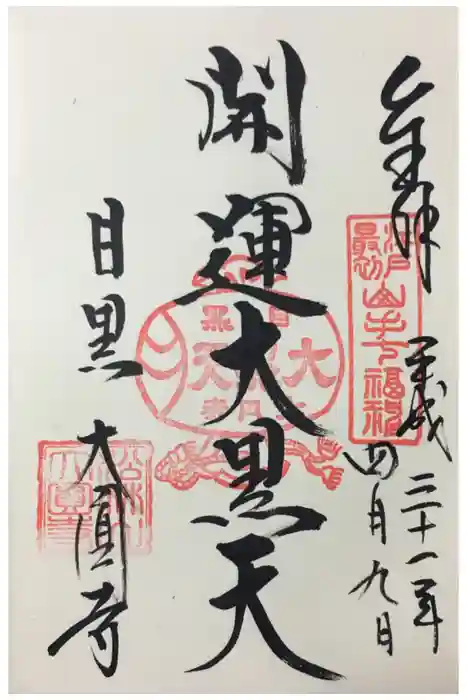 奉拝
平成三十一年
四月九日
江戸最初山手七福神
開運大黒天
大黒天
目黒
目黒大圓寺